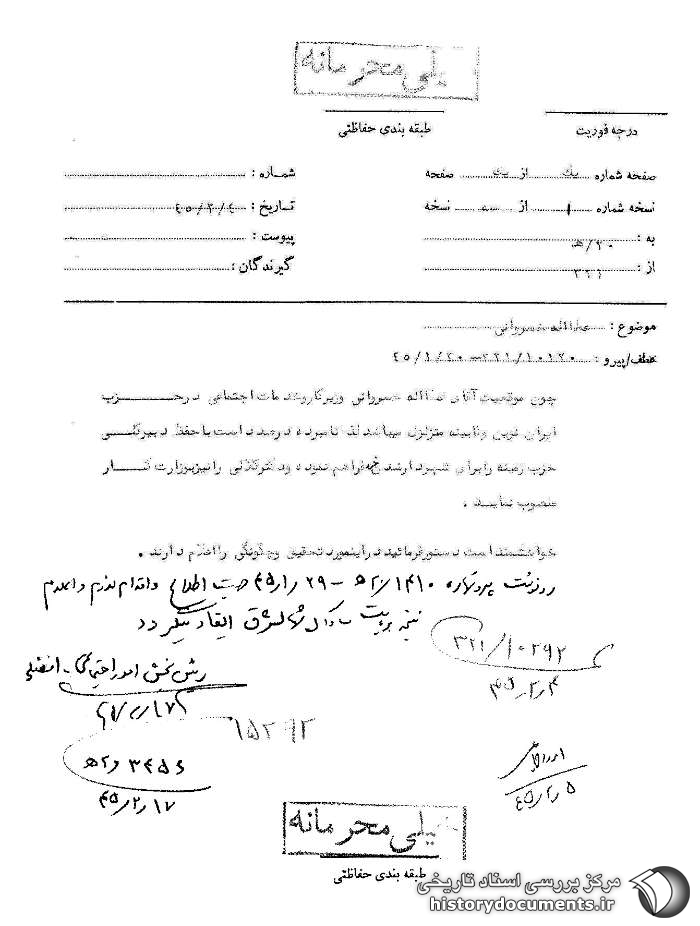 خیلی محرمانه
طبقه بندی حفاظتی
درجه فوریت
صفحه شماره یک از یک صفحه
شماره :
نسخه شماره ۱ از سه نسخه
تاریخ : ۴۵/۲/۴
به : ۲۰/ه
پیوست :
از : ۳۲۱
گیرندگان :
موضوع : عطااله خسروانی
عطف/پیرو : ۳۲۱/۱۰۱۲۰ – ۴۵/۱/۲۰
چون موقعیت آقای عطااله خسروانی وزیر کار و خدمات اجتماعی در حزب
ایران نوین و کابینه متزلزل میباشد لذا نامبرده درصدد است با حفظ دبیر کلی
حزب زمینه را برای شهردار شدن فراهم نموده و دکتر کلالی را نیز بوزارت کار
منصوب نماید .
خواهشمند است دستور فرمائید در اینمورد تحقیق و چگونگی را اعلام دارند .
رونوشت پیرو شماره ۱۴۱۰ / ۲۰ه‍ – ۴۵/۱/۲۹ جهت اطلاع و اقدام لازم و اعلام
نتیجه بریاست ساواک ایفاد میگردد
۳۲۱/۱۰۲۹۲
۴۵/۲/۴
رئیس بخش امور اجتماعی - افضلی
۱۵۲۹۲
۳۴۵۶ ۲۰ه‍
۴۵/۲/۱۷
۴۵/۲/۵
خیلی محرمانه
طبقه بندی حفاظتی
مرکز بررسی اسناد تاریخی
historydocuments.ir